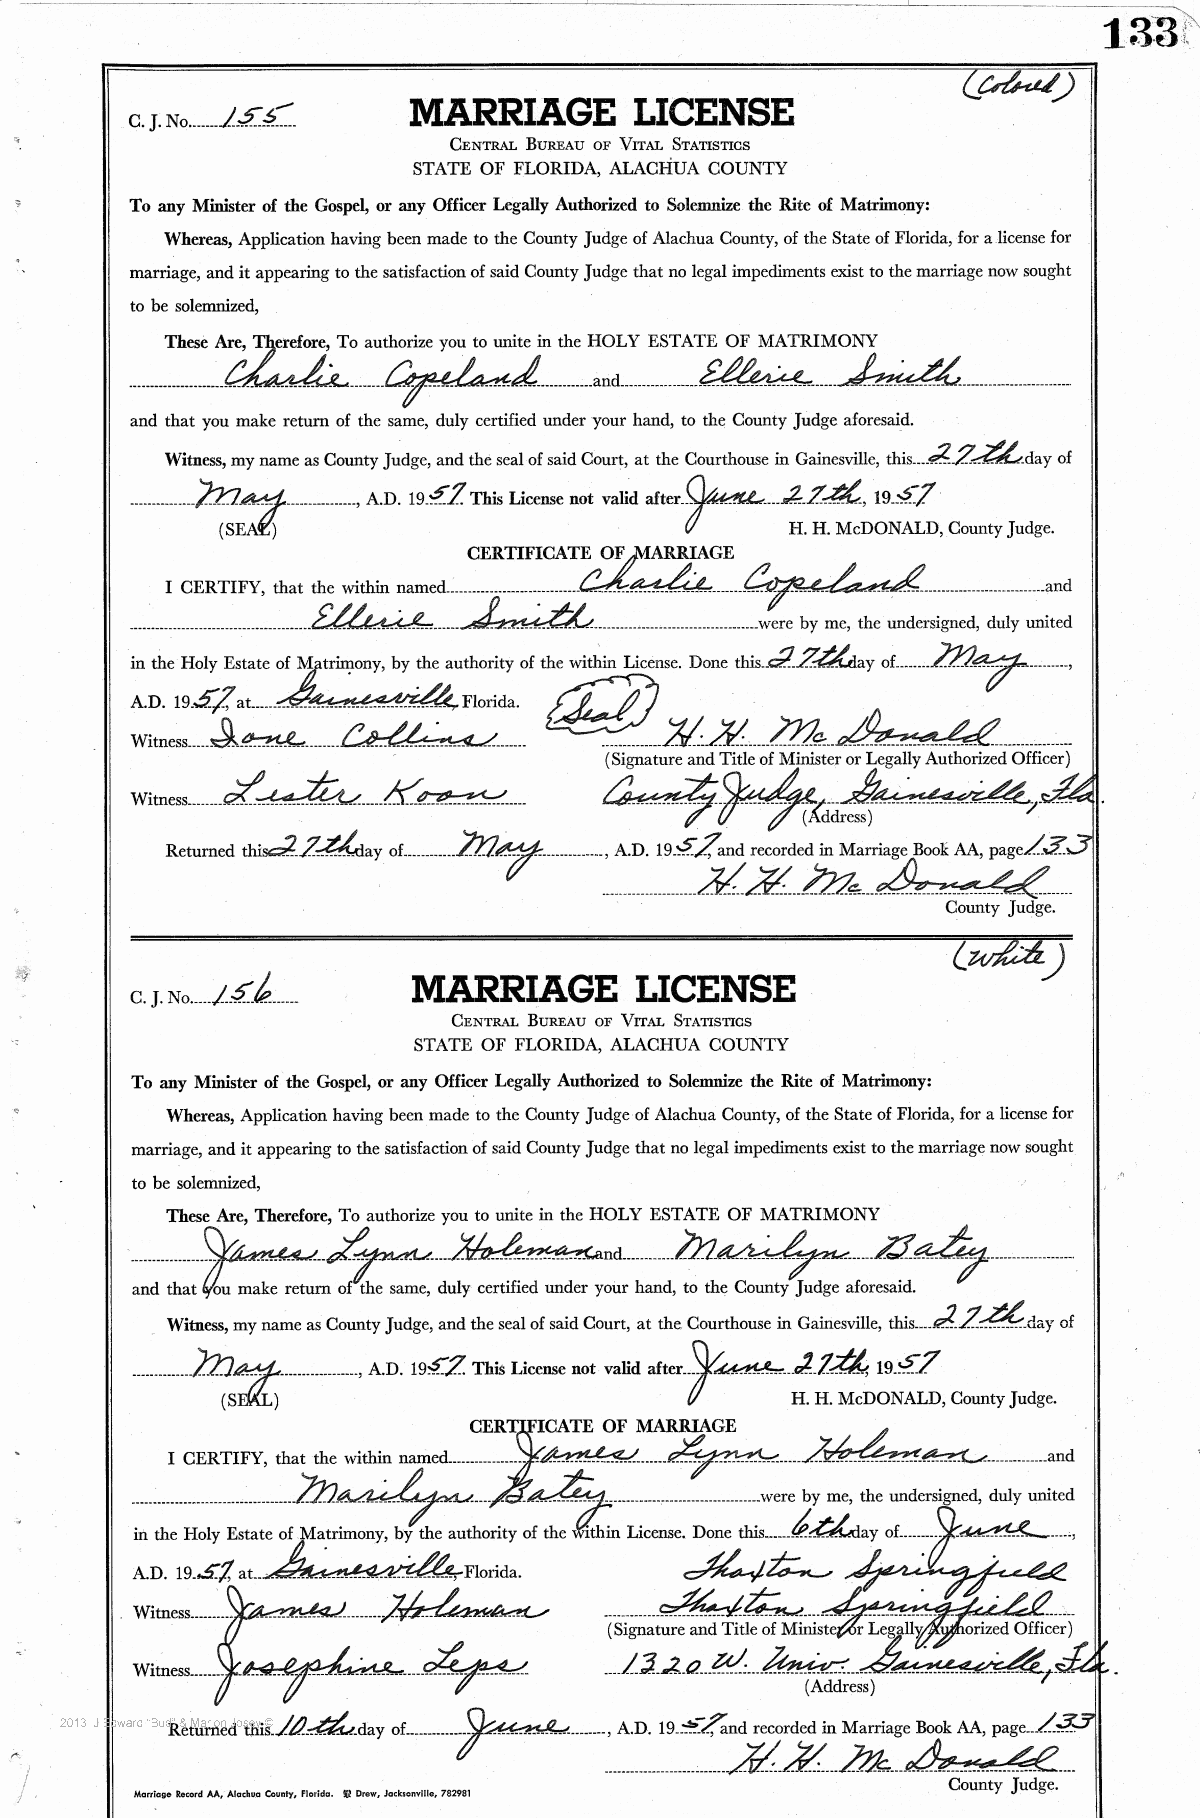 133
(Colored)
C. J. No. 155 MARRIAGE LICENSE
CENTRAL BUREAU OF VITAL STATISTICS
STATE OF FLORIDA, ALACHUA COUNTY
To any Minister of the Gospel, or any Officer Legally Authorized to Solemnize the Rite of Matrimony:
Whereas, Application having been made to the County Judge of Alachua County, of the State of Florida, for a license for
marriage, and it appearing to the satisfaction of said County Judge that no legal impediments exist to the marriage now sought
to be solemnized,
These Are, Therefore, To authorize you to unite in the HOLY ESTATE OF MATRIMONY
Charlie Copeland and Ellerie Smith
and that you make return of the same, duly certified under your hand, to the County Judge aforesaid.
Witness, my name as County Judge, and the seal of said Court, at the Courthouse in Gainesville, this 27th day of
May, A.D. 1957. This License not valid after June 27th, 1957
(SEAL) H. H. McDONALD, County Judge.
CERTIFICATE OF MARRIAGE
I CERTIFY, that the within named Charlie Copeland and
Ellerie Smith were by me, the undersigned, duly united
in the Holy Estate of Matrimony, by the authority of the within License. Done this 27th day of May,
A.D. 1957, at Gainesville, Florida. (Seal)
Witness Ione Collins H. H. McDonald
(Signature and Title of Minister or Legally Authorized Officer)
Witness Lester Koon County Judge, Gainesville, Fla.
(Address)
Returned this 27th day of May, A.D. 1957, and recorded in Marriage Book AA, page 133
H. H. McDonald
County Judge.
(White)
C. J. No. 156 MARRIAGE LICENSE
CENTRAL BUREAU OF VITAL STATISTICS
STATE OF FLORIDA, ALACHUA COUNTY
To any Minister of the Gospel, or any Officer Legally Authorized to Solemnize the Rite of Matrimony:
Whereas, Application having been made to the County Judge of Alachua County, of the State of Florida, for a license for
marriage, and it appearing to the satisfaction of said County Judge that no legal impediments exist to the marriage now sought
to be solemnized,
These Are, Therefore, To authorize you to unite in the HOLY ESTATE OF MATRIMONY
James Lynn Holeman and Marilyn Batey
and that you make return of the same, duly certified under your hand, to the County Judge aforesaid.
Witness, my name as County Judge, and the seal of said Court, at the Courthouse in Gainesville, this 27th day of
May, A.D. 1957. This License not valid after June 27th, 1957
(SEAL) H. H. McDONALD, County Judge.
CERTIFICATE OF MARRIAGE
I CERTIFY, that the within named James Lynn Holeman and
Marilyn Batey were by me, the undersigned, duly united
in the Holy Estate of Matrimony, by the authority of the within License. Done this 6th day of June,
A.D. 1957, at Gainesville, Florida. Thaxton Springfield
Witness James Holeman Thaxton Springfield
(Signature and Title of Minister or Legally Authorized Officer)
Witness Josephine Leps 1320 W. Univ. Gainesville, Fla.
(Address)
2013 J Edward "Bud" & Marion Josey ©
Returned this 10th day of June, A.D. 1957, and recorded in Marriage Book AA, page 133
H. H. McDonald
County Judge.
Marriage Record AA, Alachua County, Florida. Drew, Jacksonville, 782981